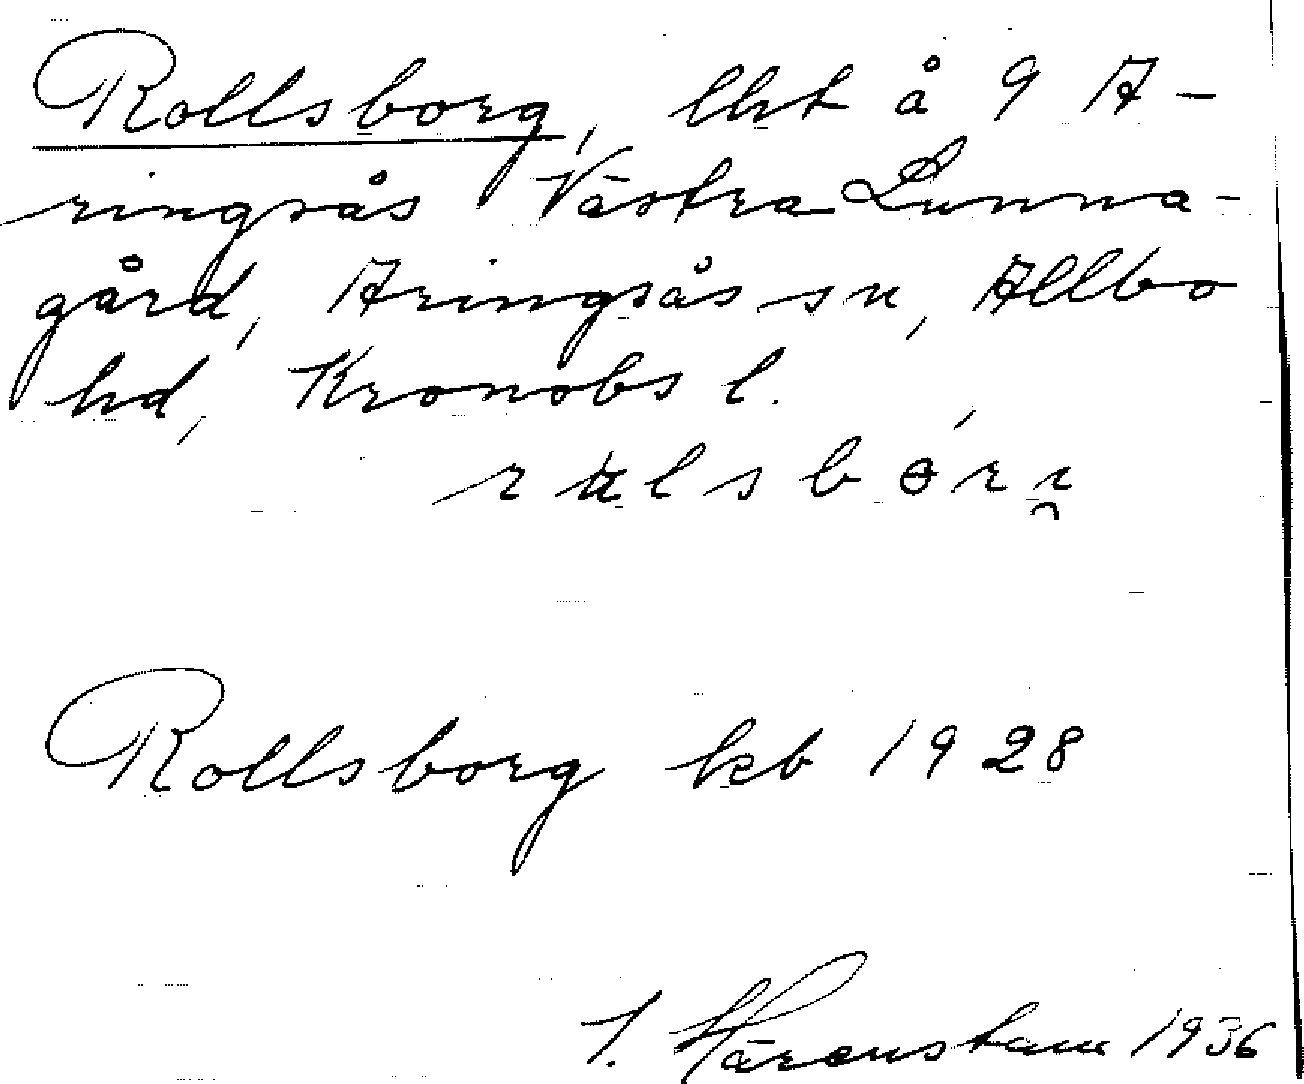 Rollsborg, lht å 9 A-
ringsås Västra Lunna-
gård, Aringsås sn, Allbo
hd, Kronobs l.
Rollsborg kb 1928
1936